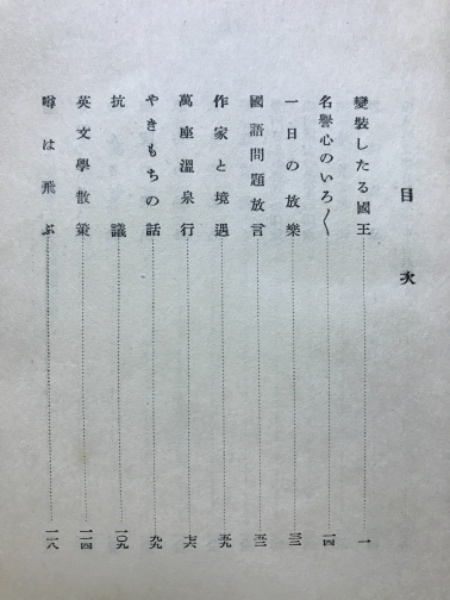 目次
變裝したる國王 一
名譽心のいろ〱 一四
一日の放樂 三三
國語問題放言 五二
作家と境遇 五九
萬座溫泉行 七六
やきもちの話 九九
抗議 一〇九
英文學散策 一一四
噂は飛ぶ 一一八